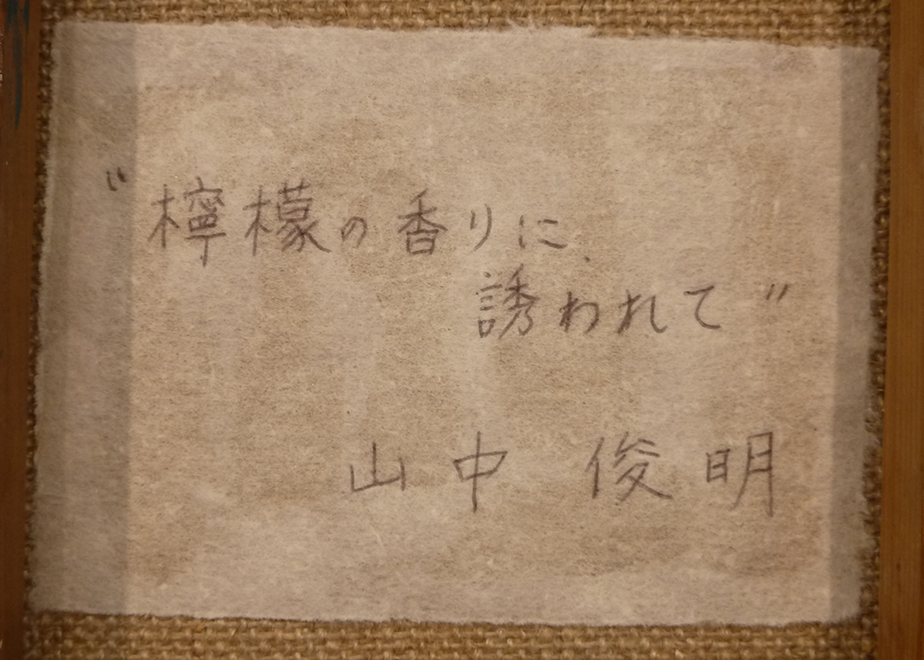 "檸檬の香りに
誘われて"
山中 俊明